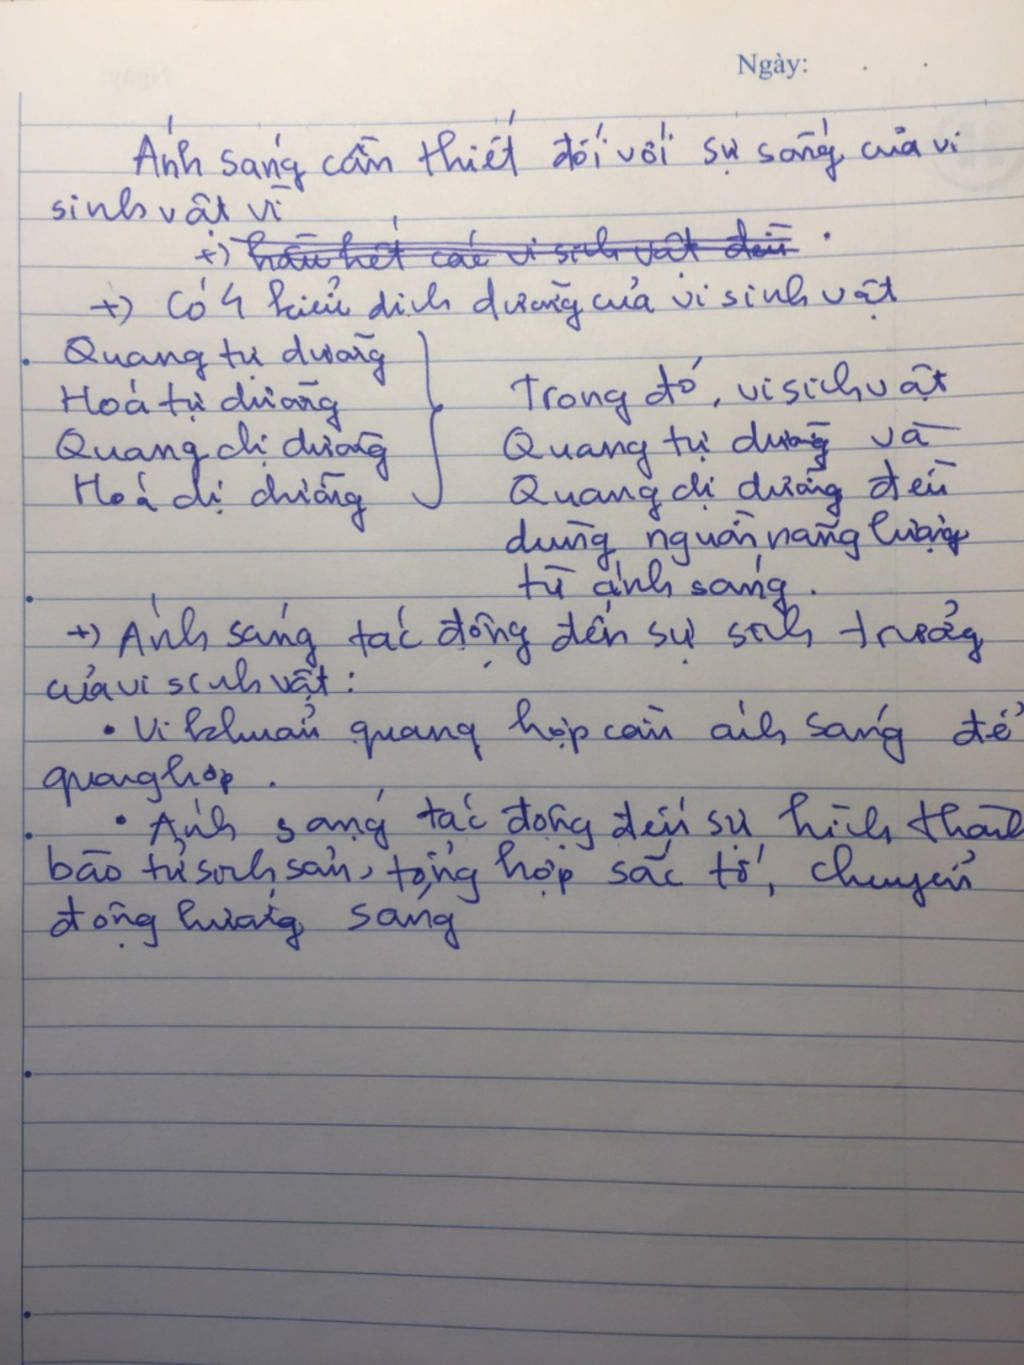 Ngày:
Ánh sáng cần thiết đối với sự sống của vi
sinh vật vì
+) hầu hết các vi sinh vật đều
+) Có 4 kiểu dinh dưỡng của vi sinh vật
Quang tự dưỡng
Hoá tự dưỡng
Quang dị dưỡng
Hoá dị dưỡng
Trong đó, vi sinh vật
Quang tự dưỡng và
Quang dị dưỡng đều
dùng nguồn năng lượng
từ ánh sáng.
+) Ánh sáng tác động đến sự sinh trưởng
của vi sinh vật:
• Vi khuẩn quang hợp cần ánh sáng để
quang hợp.
• Ánh sáng tác động đến sự hình thành
bào tử sinh sản, tổng hợp sắc tố, chuyển
động hướng sáng